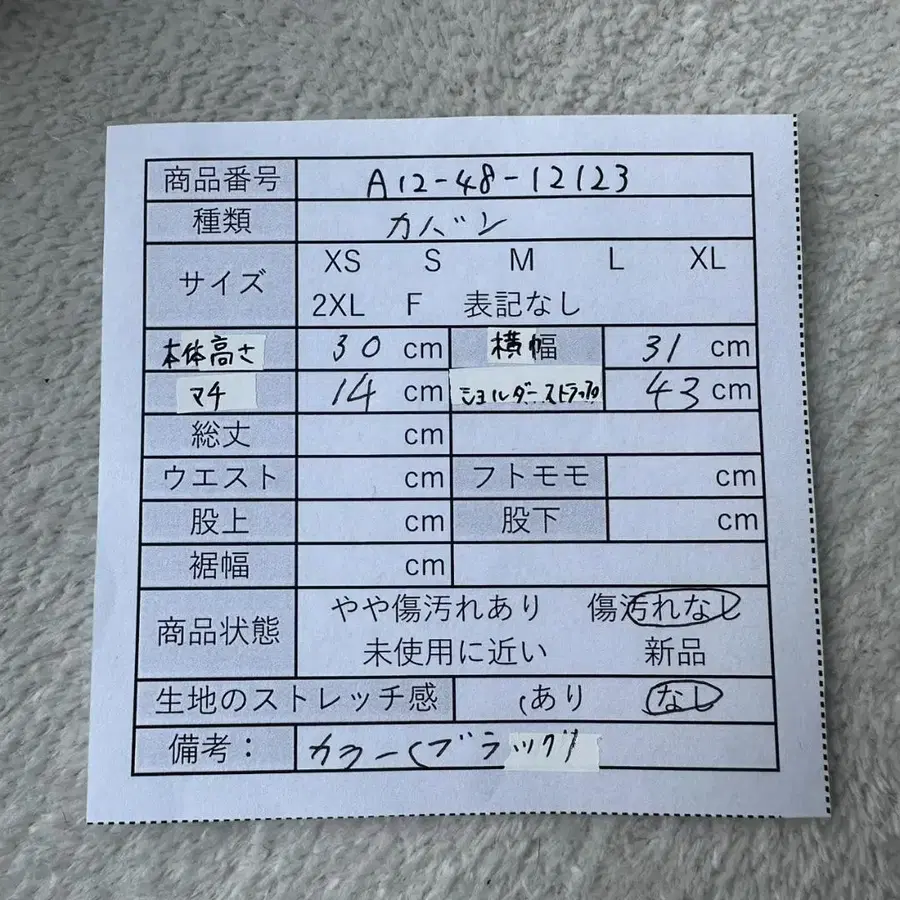 商品番号 A12-48-12123
種類 カバン
サイズ XS S M L XL
2XL F 表記なし
本体高さ 30 cm 横幅 31 cm
マチ 14 cm ショルダーストラップ 43 cm
総丈 cm
ウエスト cm フトモモ cm
股上 cm 股下 cm
裾幅 cm
商品状態 やや傷汚れあり 傷汚れなし
未使用に近い 新品
生地のストレッチ感 あり なし
備考： カラー(ブラック)